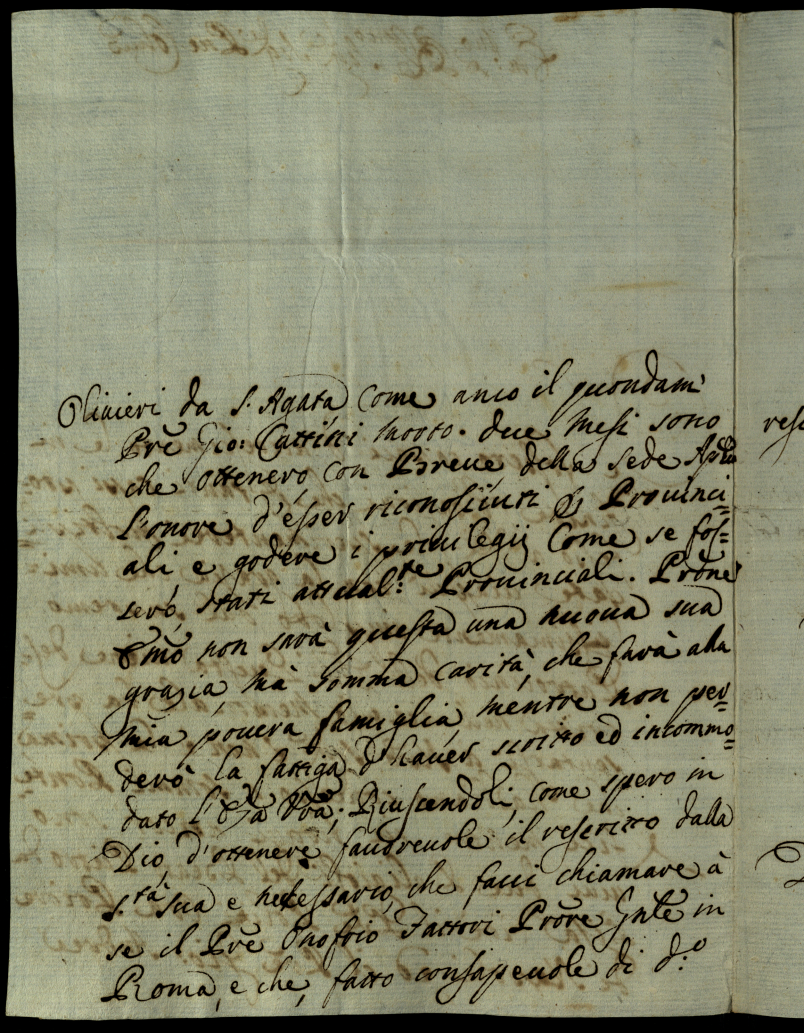 Olivieri da S. Agata come anco il quondam
Prē Gio: Cattini morto. due mesi sono
che ottenero con Breve della Sede Ap.lica
l'onore d'esser riconosciuti Provinci=
ali e godere i privilegij come se fos=
sero stati attual.te Provinciali. Prōne
Emō non sarà questa una nuova sua
grazia, mà somma carità, che farà alla
mia povera famiglia, mentre non per=
derò la fattiga d'haver scritto ed incommo=
dato l'Ezā Vrā; Riuscendoli, come spero in
Dio, d'ottenere favorevole il rescritto dalla
S.tà Sua e necessario, che facci chiamare à
se il Prē Onofrio Fattori Prōre Gnlē in
Roma, e che, fatto consapevole di d.o
resc